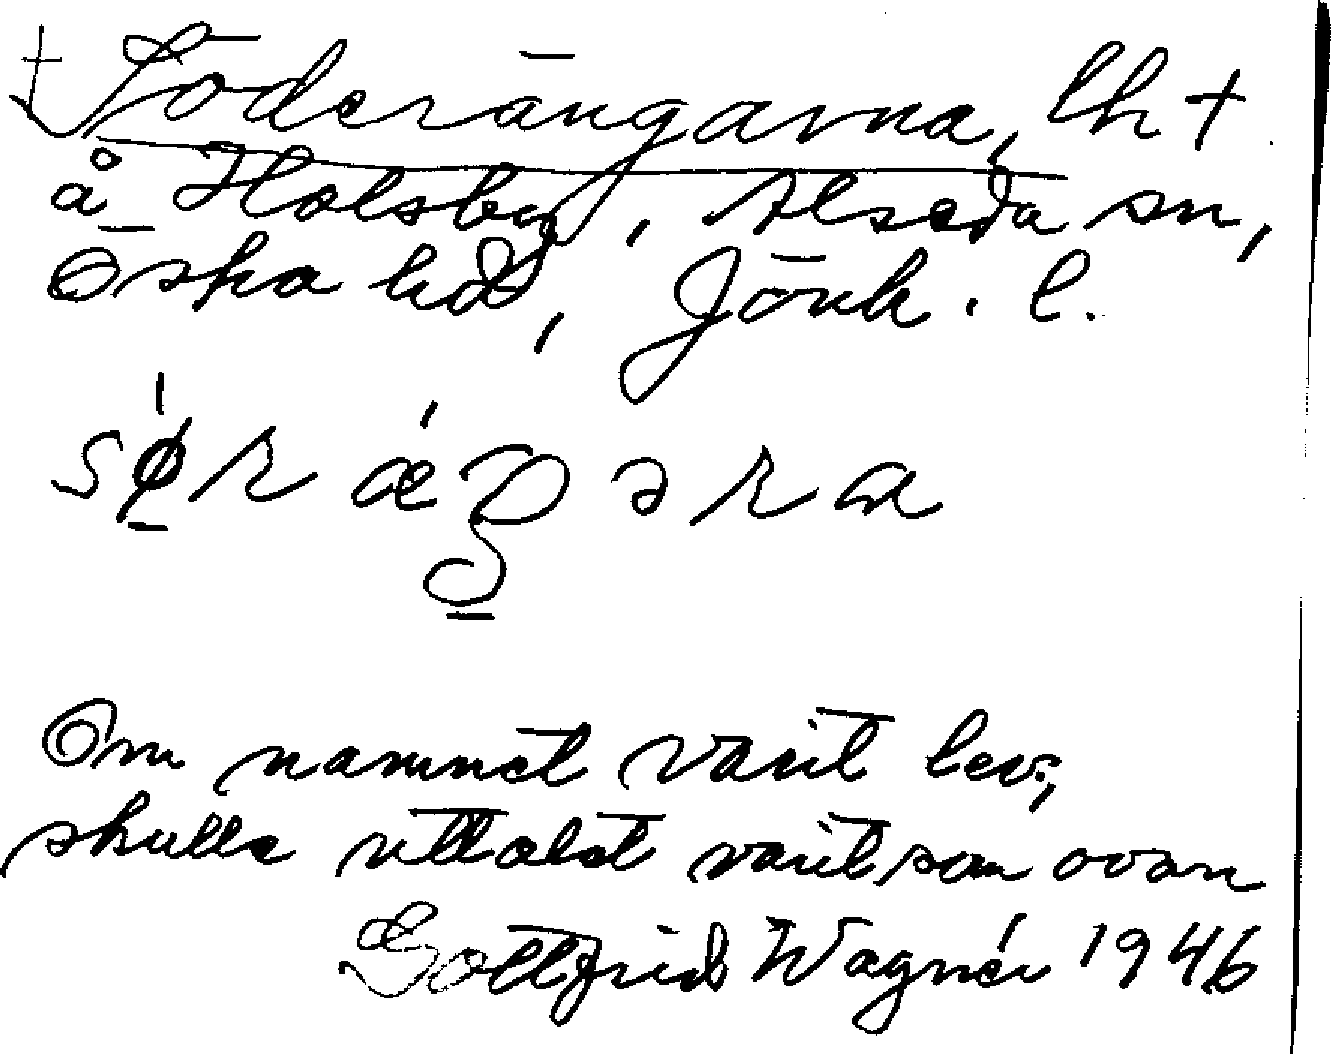 † Söderängarna, lht
å Holsby, Alseda sn,
Östra hd, Jönk. l.
Om namnet varit lev.,
skulle uttalet varit som ovan
Gottfrid Wagnér 1946